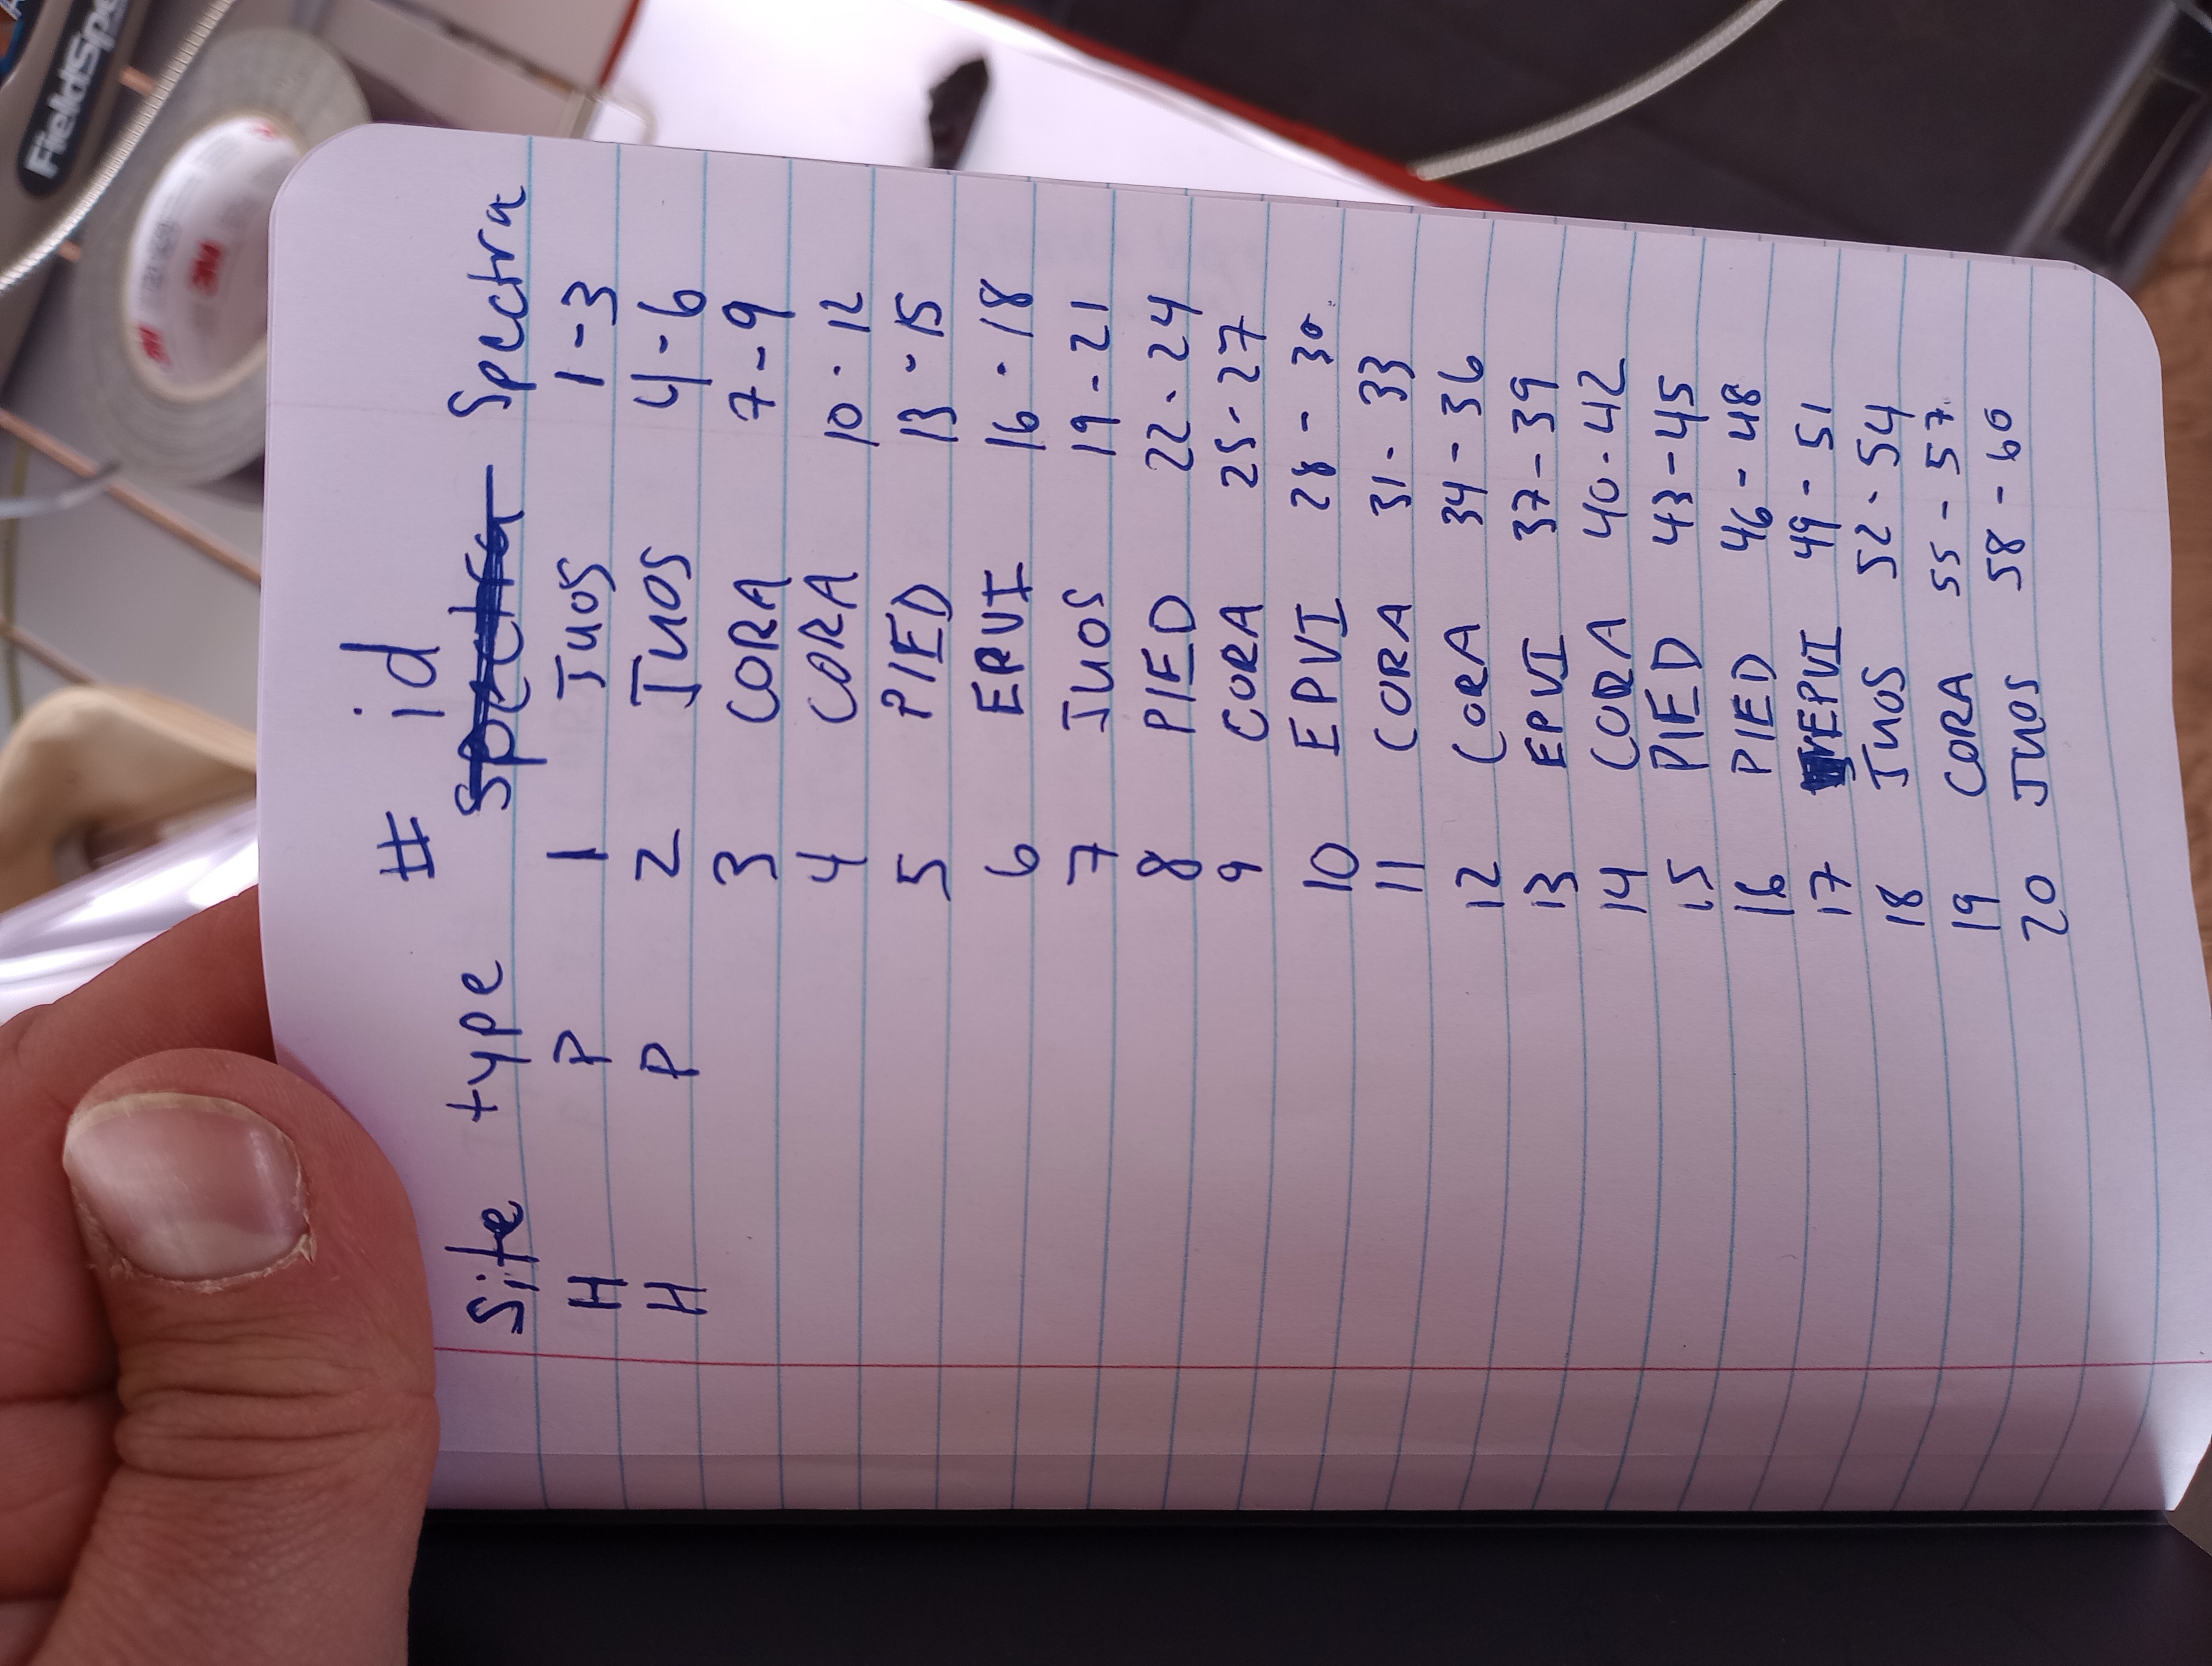 FieldSpe
3M
3M
# id
Site type Spectra Spectra
H P 1 JUOS 1-3
H P 2 JUOS 4-6
3 CORA 7-9
4 CORA 10-12
5 PIED 13-15
6 EPVI 16-18
7 JUOS 19-21
8 PIED 22-24
9 CORA 25-27
10 EPVI 28-30
11 CORA 31-33
12 CORA 34-36
13 EPVI 37-39
14 CORA 40-42
15 PIED 43-45
16 PIED 46-48
17 EPVI 49-51
18 JUOS 52-54
19 CORA 55-57
20 JUOS 58-60